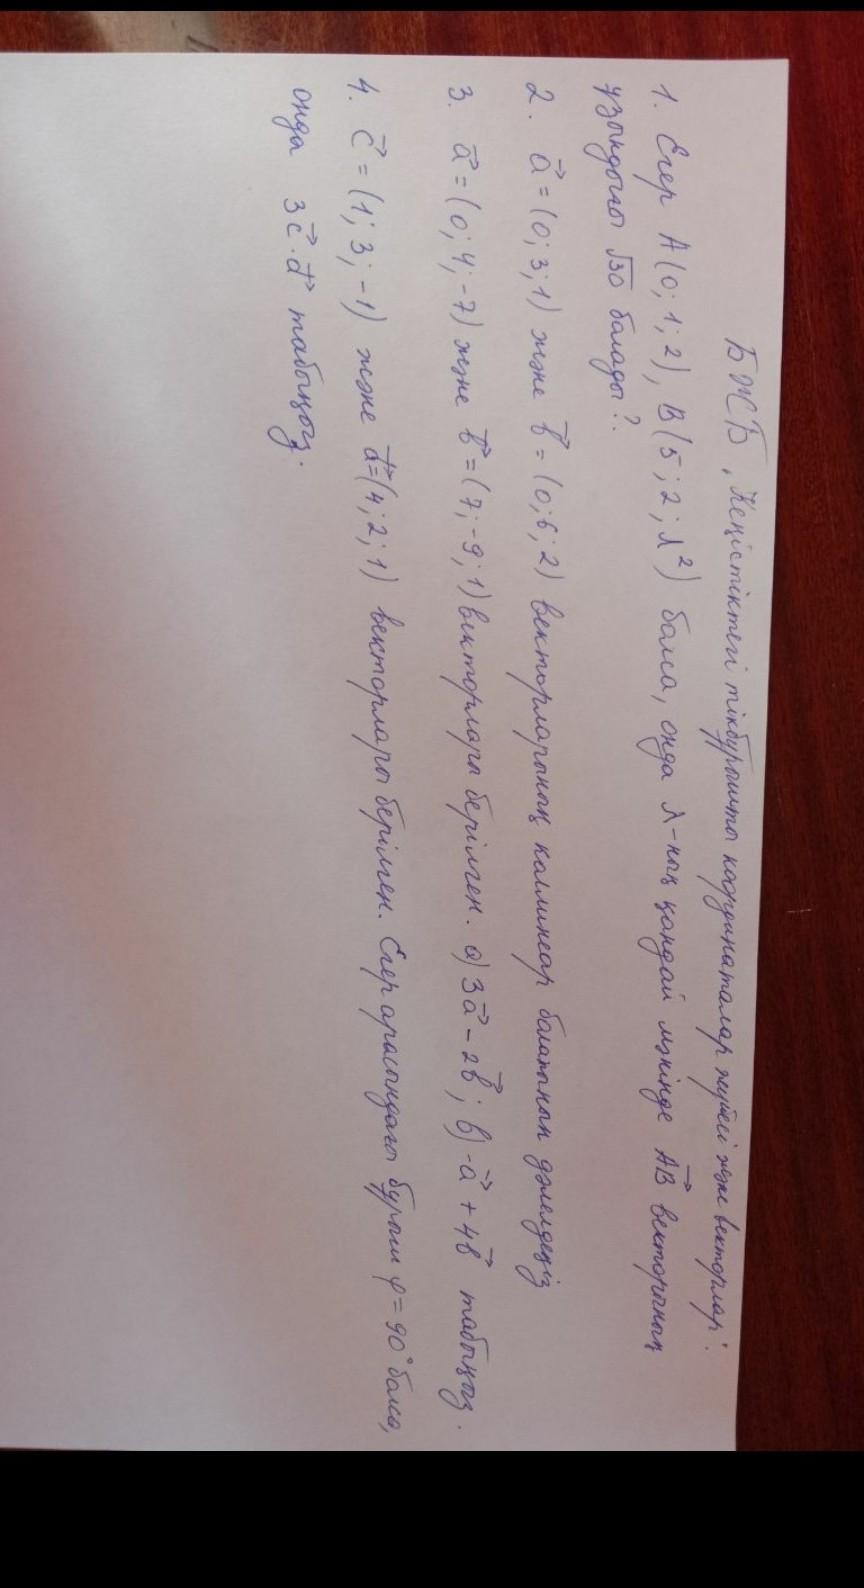 БЖБ „Кеңістіктегі тікбұрышты координаталар жүйесі және векторлар".
1. Егер A(0; 1; 2), B(5; 2; λ²) болса, онда λ-ның қандай мәнінде AB⃗ векторының
ұзындығы √30 болады?.
2. a⃗ = (0; 3; 1) және b⃗ = (0; 6; 2) векторларының коллинеар болатынын дәлелдеңіз
3. a⃗ = (0; 4; -7) және b⃗ = (7; -9; 1) векторлары берілген. a) 3a⃗ - 2b⃗; b) -a⃗ + 4b⃗ табыңыз.
4. c⃗ = (1; 3; -1) және d⃗ = (4; 2; 1) векторлары берілген. Егер арасындағы бұрыш φ = 90° болса,
онда 3c⃗ · d⃗ табыңыз.